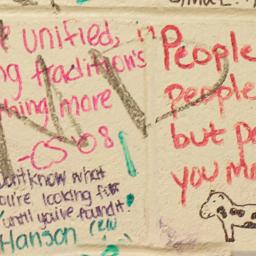 unified,
traditions
thing more
-CS '08
Don't know what
you're looking for
until you've found it!
Hanson
"People
people
but pe
you m